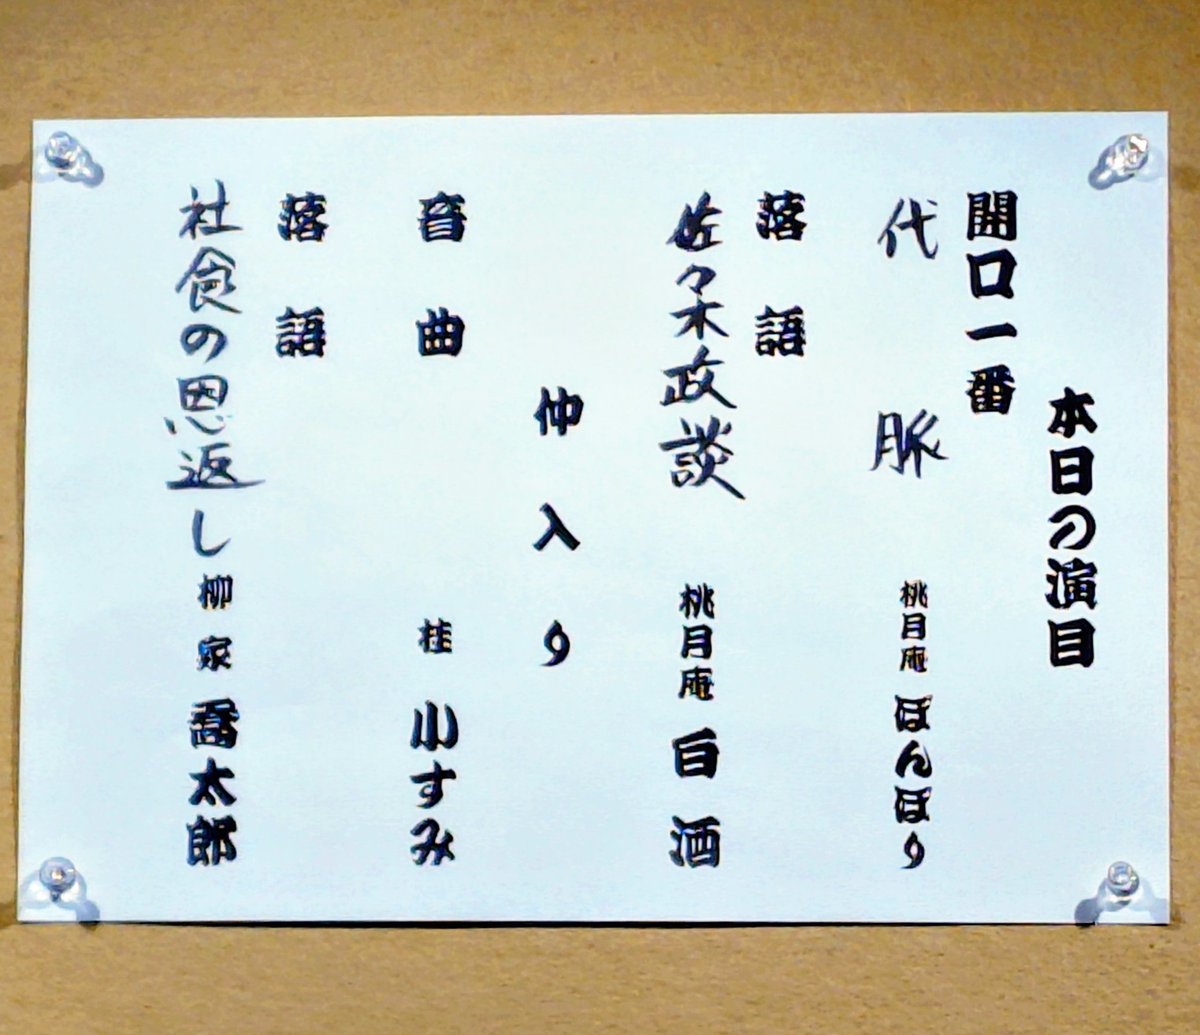 本日の演目
開口一番
代脈 桃月庵 ぼんぼり
落語
佐々木政談 桃月庵 白酒
仲入り
音曲 桂 小すみ
落語
社食の恩返し 柳家 喬太郎